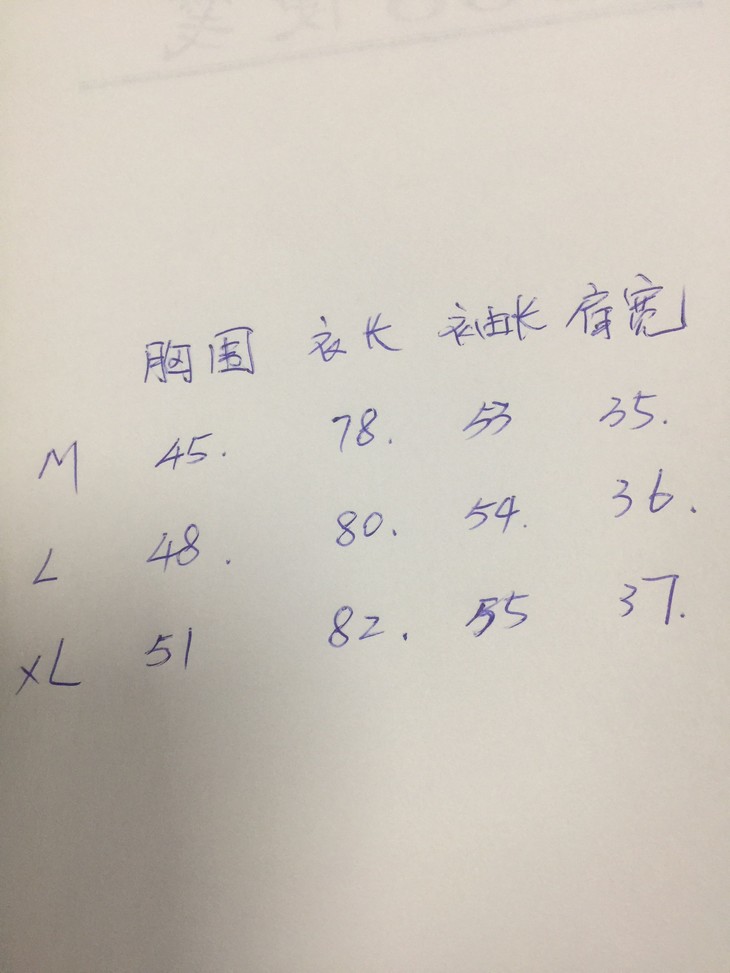 胸围 衣长 袖长 肩宽
M 45. 78. 53 35.
L 48. 80. 54. 36.
XL 51 82. 55 37.